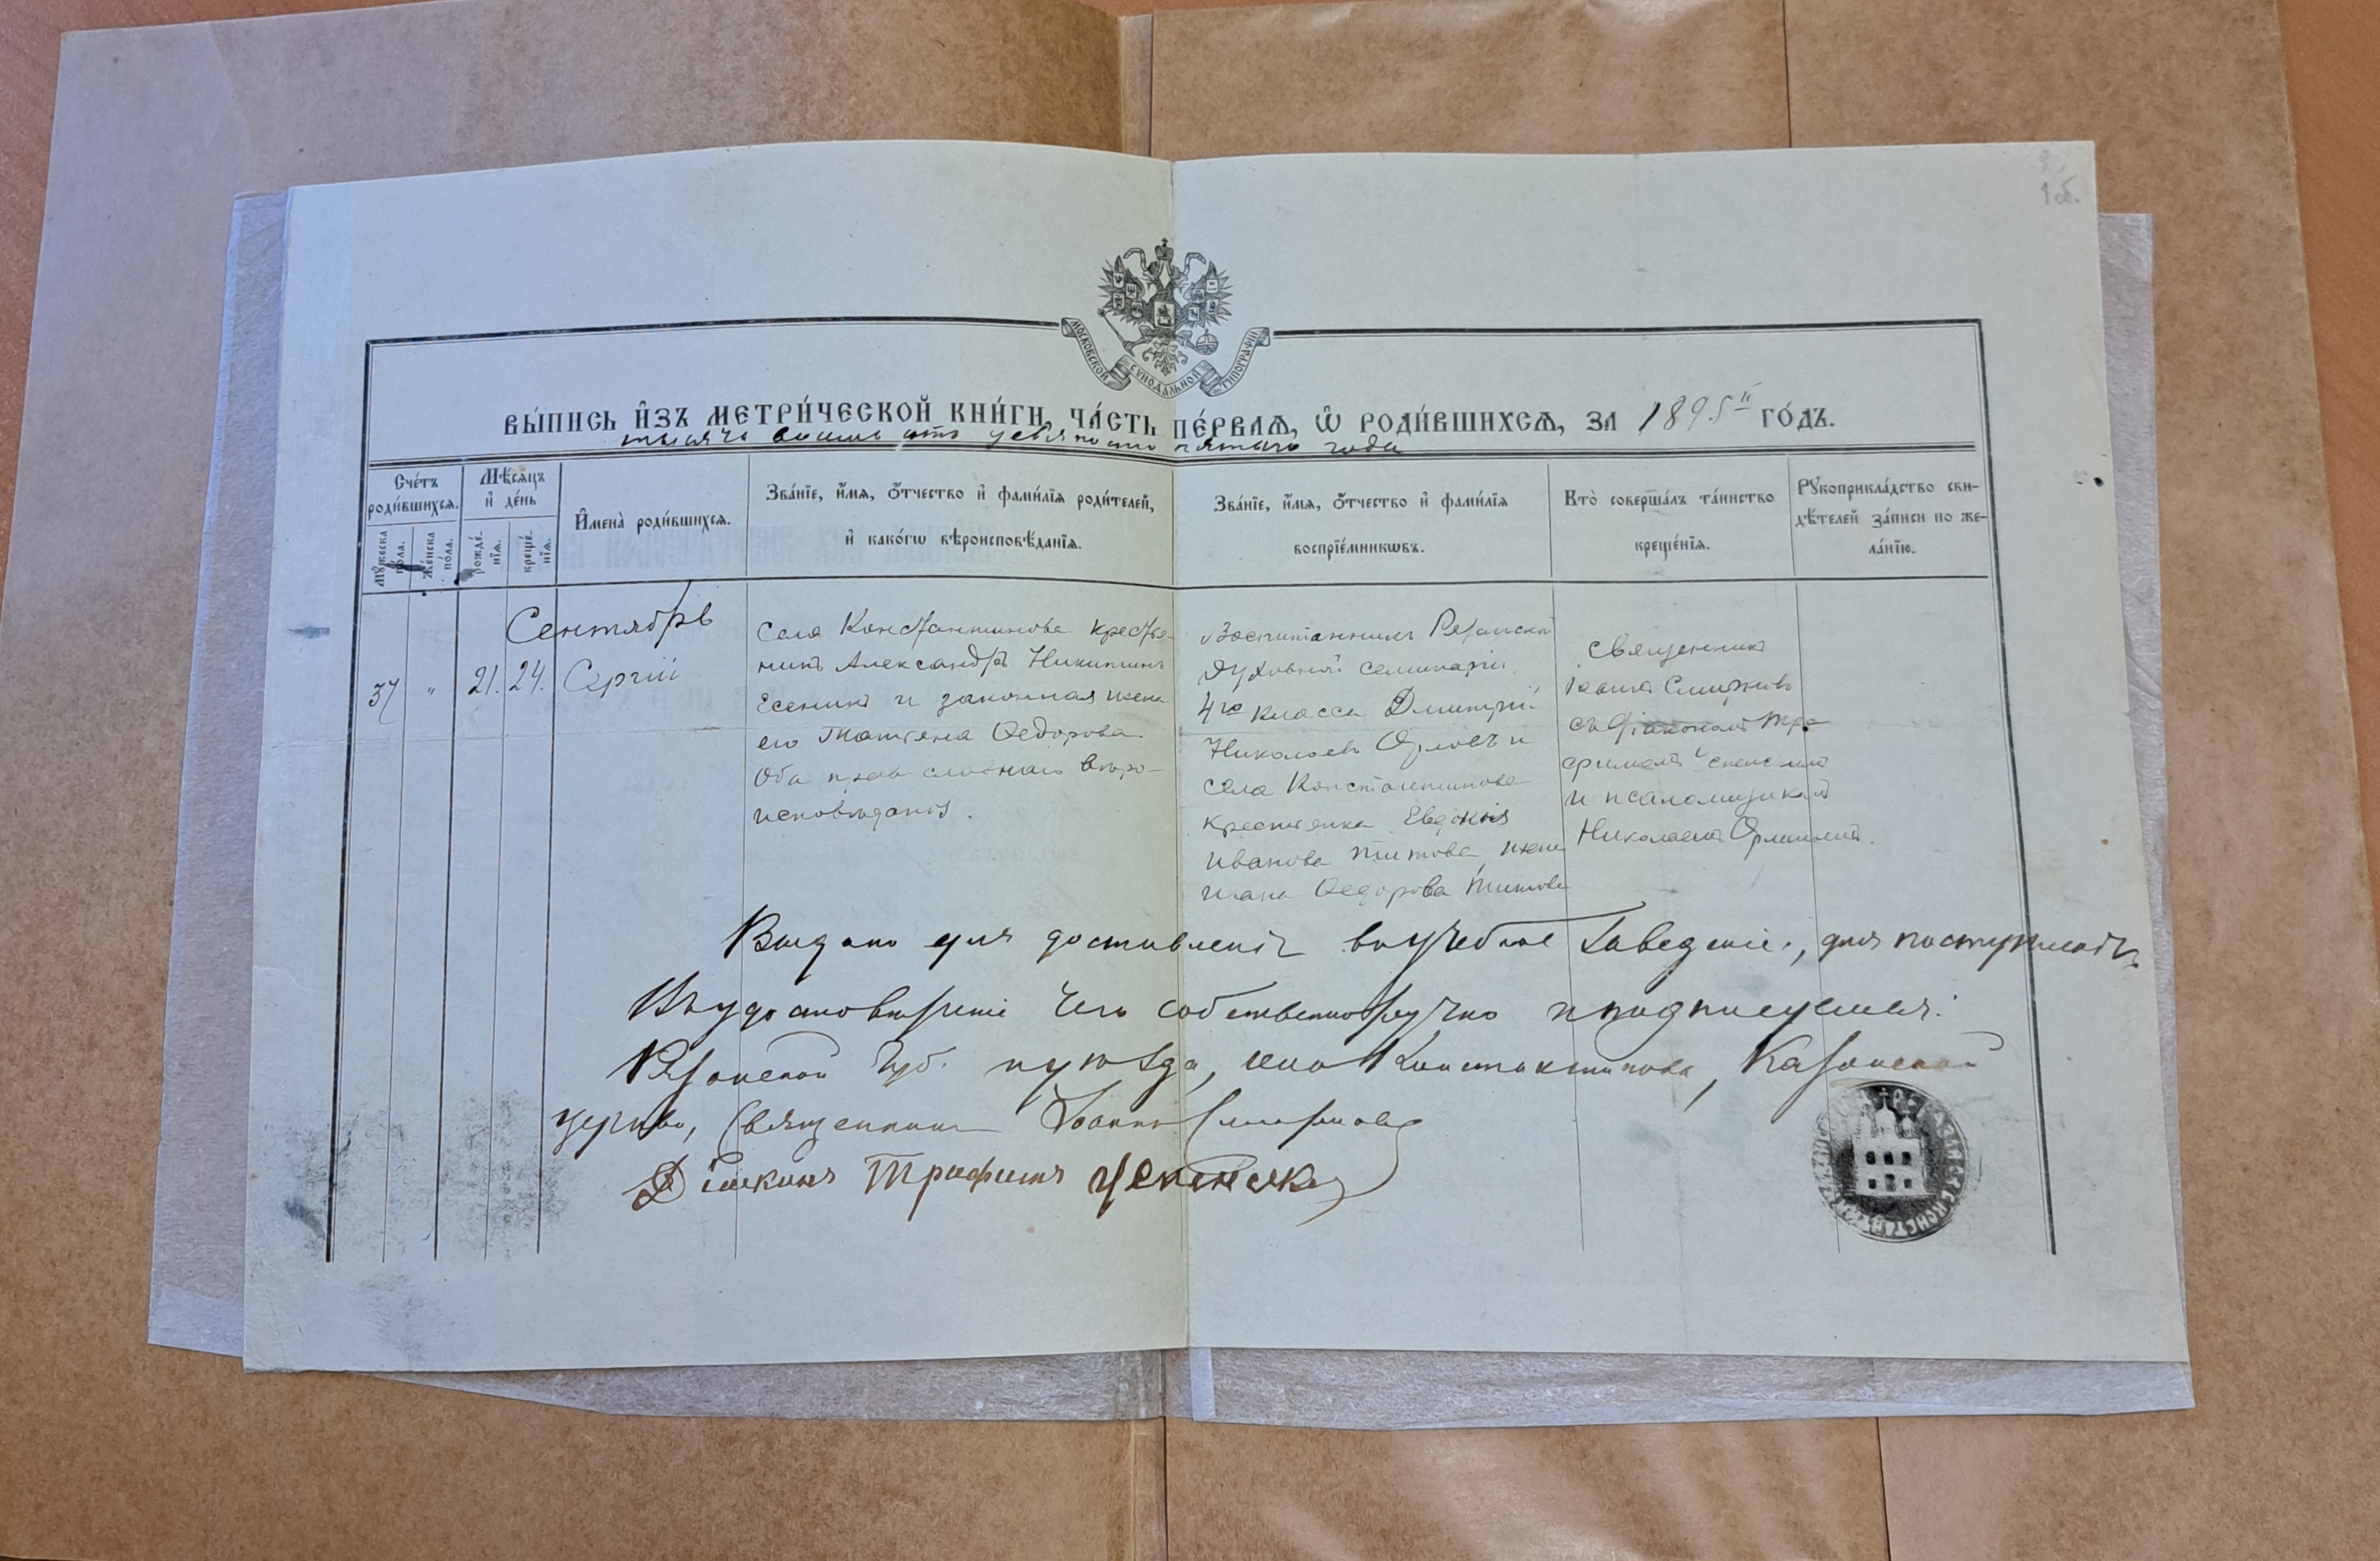 1об.
МОСКОВСКОЙ СѴНОДАЛЬНОЙ ТИПОГРАФІИ
ВЫ́ПИСЬ И҆ЗЪ МЕТРИ́ЧЕСКОЙ КНИ́ГИ, ЧА́СТЬ ПЕ́РВАѦ, Ѽ РОДИ́ВШИХСѦ, ЗА 1895й ГО́ДЪ.
тысяча восемь сотъ девяносто пятаго года
Сче́тъ роди́вшихсѧ.
Мꙋ́жеска по́ла.
Же́нска по́ла.
Мѣ́сѧцъ и҆ де́нь
рожде́нїѧ.
креще́нїѧ.
И҆мена̀ роди́вшихсѧ.
Зва́нїе, и҆́мѧ, ѻ҆́тчество и҆ фами́лїѧ роди́телей,
и҆ како́гѡ вѣроисповѣ́данїѧ.
Зва́нїе, и҆́мѧ, ѻ҆́тчество и҆ фами́лїѧ
воспрїе́мникѡвъ.
Кто̀ соверша́лъ та́инство
креще́нїѧ.
Рꙋкоприкла́дство сви-
дѣ́телей за́писи по же-
ла́нїю.
Сентябрь
37 " 21. 24. Сергій
Села Константинова крестья-
нинъ Александръ Никитинъ
Есенинъ и законная жена
его Татьяна Ѳедорова
Оба православнаго вѣро-
исповѣданія.
Воспитанникъ Рязанской
духовной семинаріи
4го класса Димитрій
Николаевъ Орловъ и
села Константинова
крестьянка Евдокія
Иванова Титова, жена
Ѳедорова Титова
Священникъ
Іоаннъ Смирновъ
съ діакономъ Тро
фимомъ Успенскимъ
и псаломщикомъ
Николаемъ
Выдано для доставленія въ учебное заведеніе, для поступленія
Въ удостовѣреніе чего собственноручно и подписуемся:
Рязанской Губ. и уѣзда, села Константинова, Казанской
церкви, Священникъ Іоаннъ Смирновъ
Діаконъ Трофимъ Успенскій